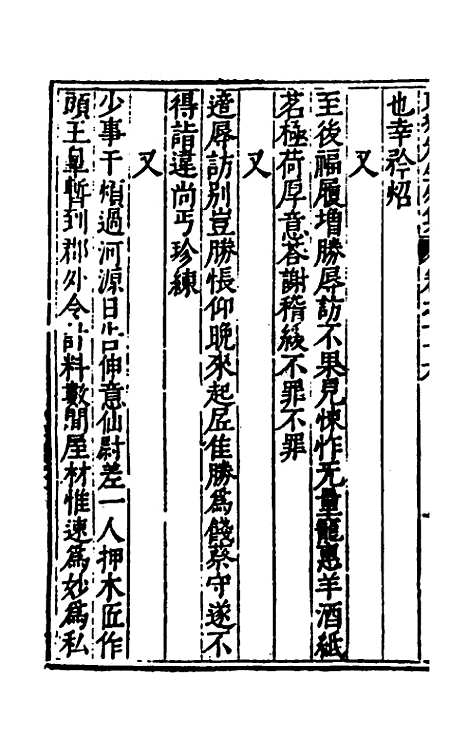 也幸矜炤
又
至後福履增勝辱訪不果見悚怍无量寵惠羊酒紙
茗極荷厚意荅謝稽緩不罪不罪
又
逰辱訪別豈勝悵仰晚來起居佳勝爲餞蔡守遂不
得詣違尚丐珍練
又
少事干煩過河源日告伸意仙尉差一人押木匠作
頭王臯暫到郡外令計料數間屋材惟速爲妙爲私